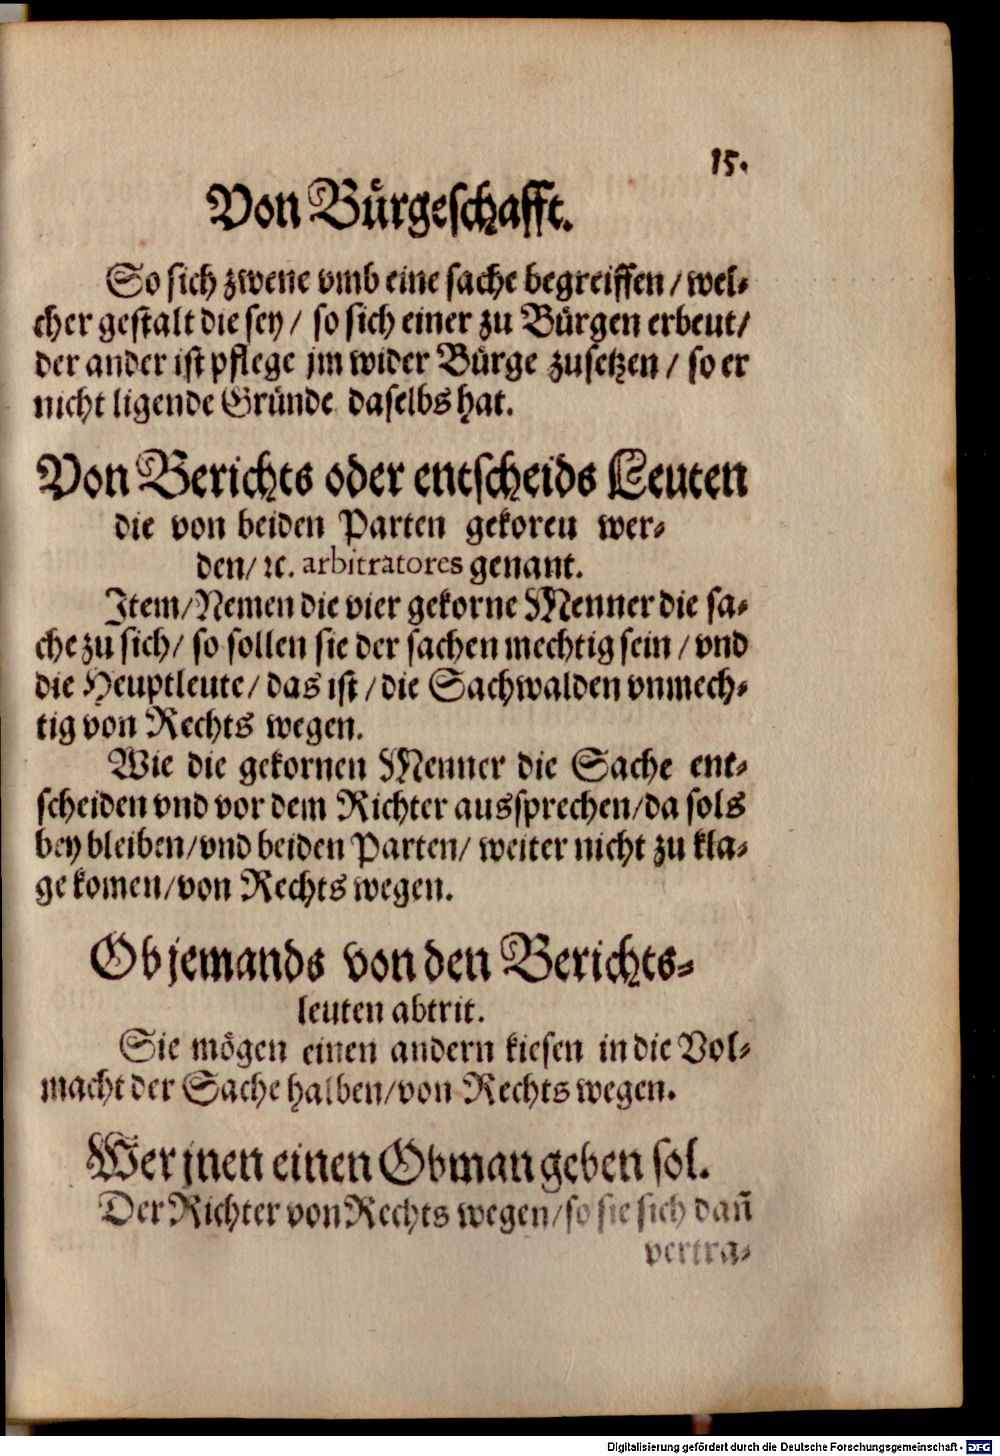 15.
Von Bürgeschafft.
So sich zwene vmb eine sache begreiffen / wel-
cher gestalt die sey / so sich einer zu Bürgen erbeut/
der ander ist pflege jm wider Bürge zusetzen / so er
nicht ligende Gründe daselbs hat.
Von Berichts oder entscheids Leuten
die von beiden Parten gekoren wer-
den/ ꝛc. arbitratores genant.
Item/Nemen die vier gekorne Menner die sa-
che zu sich/ so sollen sie der sachen mechtig sein / vnd
die Heuptleute/ das ist / die Sachwalden vnmech-
tig von Rechts wegen.
Wie die gekornen Menner die Sache ent-
scheiden vnd vor dem Richter aussprechen/da sols
bey bleiben/vnd beiden Parten/ weiter nicht zu kla-
ge komen/von Rechts wegen.
Ob jemands von den Berichts-
leuten abtrit.
Sie mögen einen andern kiesen in die Vol-
macht der Sache halben/von Rechts wegen.
Wer jnen einen Obman geben sol.
Der Richter von Rechts wegen/so sie sich dañ
vertra-
Digitalisierung gefördert durch die Deutsche Forschungsgemeinschaft - DFG